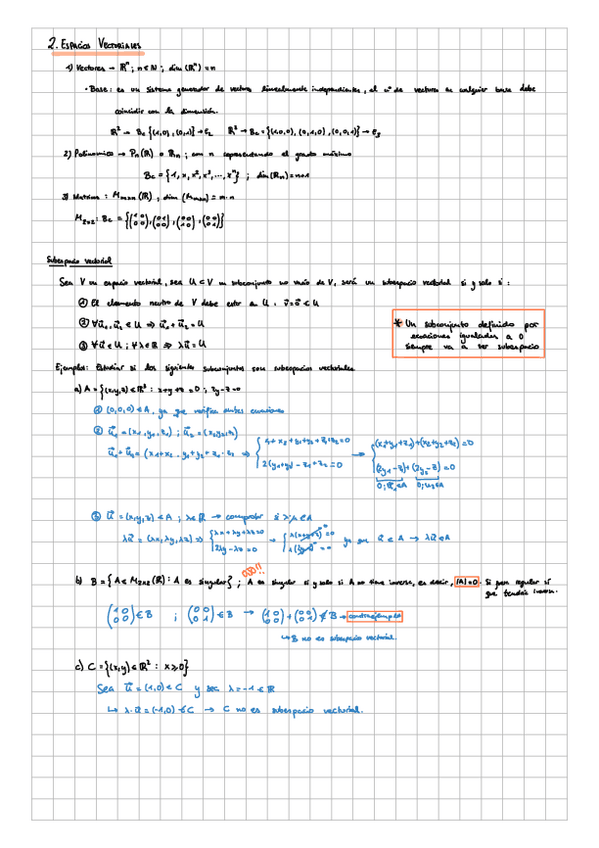 2. ESPACIOS VECTORIALES
1) Vectores → ℝⁿ ; n ∈ N ; dim (ℝⁿ) = n
• Base: es un sistema generador de vectores linealmente independientes, el nº de vectores en cualquier base debe
coincidir con la dimensión.
ℝ² → Bc {(1,0), (0,1)} → e₂ ℝ³ → Bc = {(1,0,0), (0,1,0), (0,0,1)} → e₃
2) Polinomios → Pn(ℝ) o ℝn ; con n representando el grado máximo
Bc = {1, x, x², x³, ..., xⁿ} ; dim(ℝn) = n+1
3) Matrices : Mmxn (ℝ) ; dim (Mmxn) = m·n
M2x2 : Bc = {(1 0 / 0 0), (0 1 / 0 0), (0 0 / 1 0), (0 0 / 0 1)}
Subespacio vectorial
Sea V un espacio vectorial, sea U ⊂ V un subconjunto no vacío de V, será un subespacio vectorial si y solo si :
① El elemento neutro de V debe estar a U.
② ∀ū₁, ū₂ ∈ U ⇒ ū₁ + ū₂ = U
③ ∀ū ∈ U ; ∀λ ∈ ℝ ⇒ λū = U
* Un subconjunto definido por
ecuaciones igualadas a 0
siempre va a ser subespacio
Ejemplos: Estudiar si los siguientes subconjuntos son subespacios vectoriales
a) A = {(x,y,z) ∈ ℝ³ : x+y+z = 0 ; 2y-z = 0
① (0,0,0) ∈ A, ya que verifica ambas ecuaciones
② ū₁ = (x₁, y₁, z₁) ; ū₂ = (x₂, y₂, z₂)
x₁ + x₂ + y₁ + y₂ + z₁ + z₂ = 0 (x₁+y₁+z₁) + (x₂+y₂+z₂) = 0
ū₁ + ū₂ = (x₁+x₂, y₁+y₂, z₁+z₂) ⇒ 2(y₁+y₂) - z₁ + z₂ = 0 → (2y₁-z₁) + (2y₂-z₂) = 0
0; ū₁ ∈ A 0; u₂ ∈ A
③ ū = (x,y,z) ∈ A ; λ ∈ ℝ → comprobar si λ·u ∈ A
λū = (λx, λy, λz) ⇒ {λx + λy + λz = 0 / 2λy - λz = 0 → {λ(x+y+z) = 0 / λ(2y-z) = 0 ya que ū ∈ A → λū ∈ A
OJO!!
b) B = {A ∈ M2x2 (ℝ) : A es singular} ; A es singular si y solo si A no tiene inversa, es decir, |A| = 0. Si fuera regular sí
que tendría inversa.
(1 0 / 0 0) ∈ B ; (0 0 / 0 1) ∈ B → (1 0 / 0 0) + (0 0 / 0 1) ∉ B → contraejemplo
↳ B no es subespacio vectorial.
c) C = {(x,y) ∈ ℝ² : x ≥ 0}
Sea ū = (1,0) ∈ C y sea λ = -1 ∈ ℝ
↳ λ·ū = (-1,0) ∉ C → C no es subespacio vectorial.